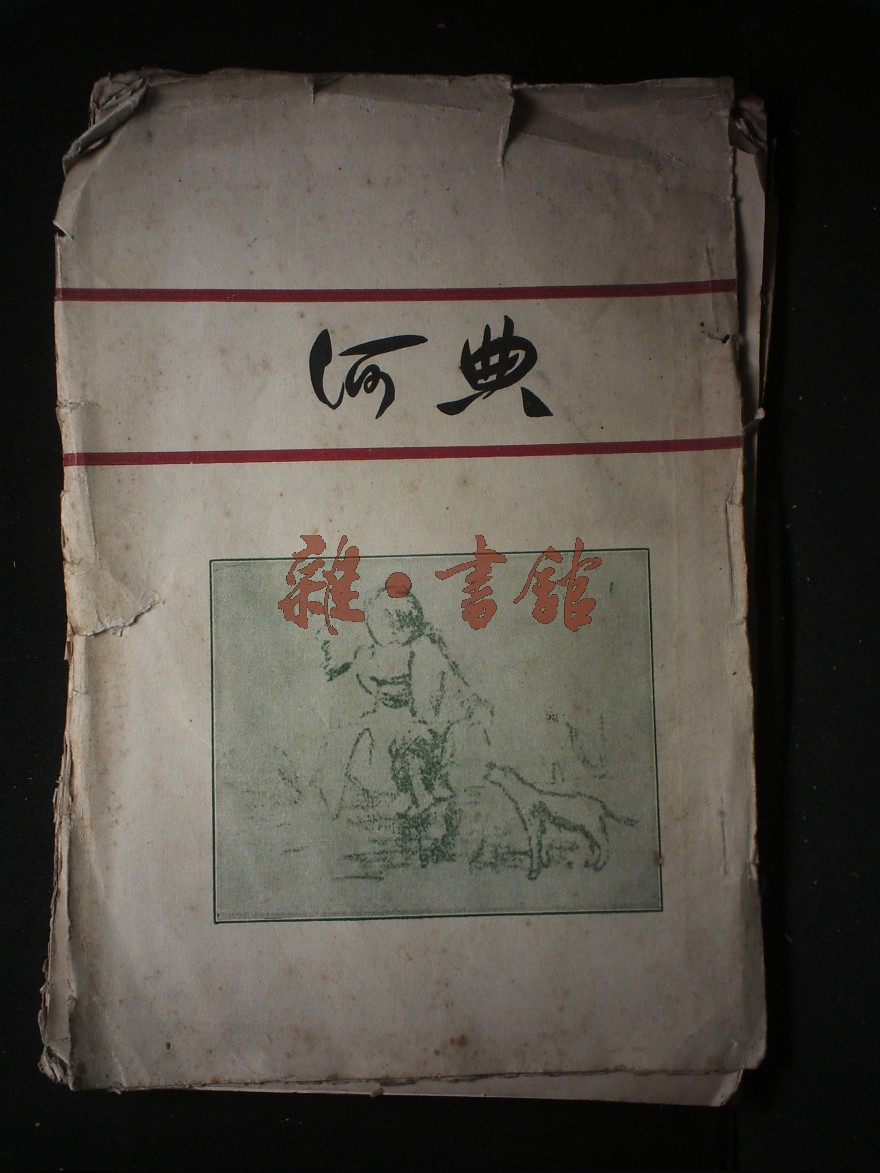 何典
雜·書館